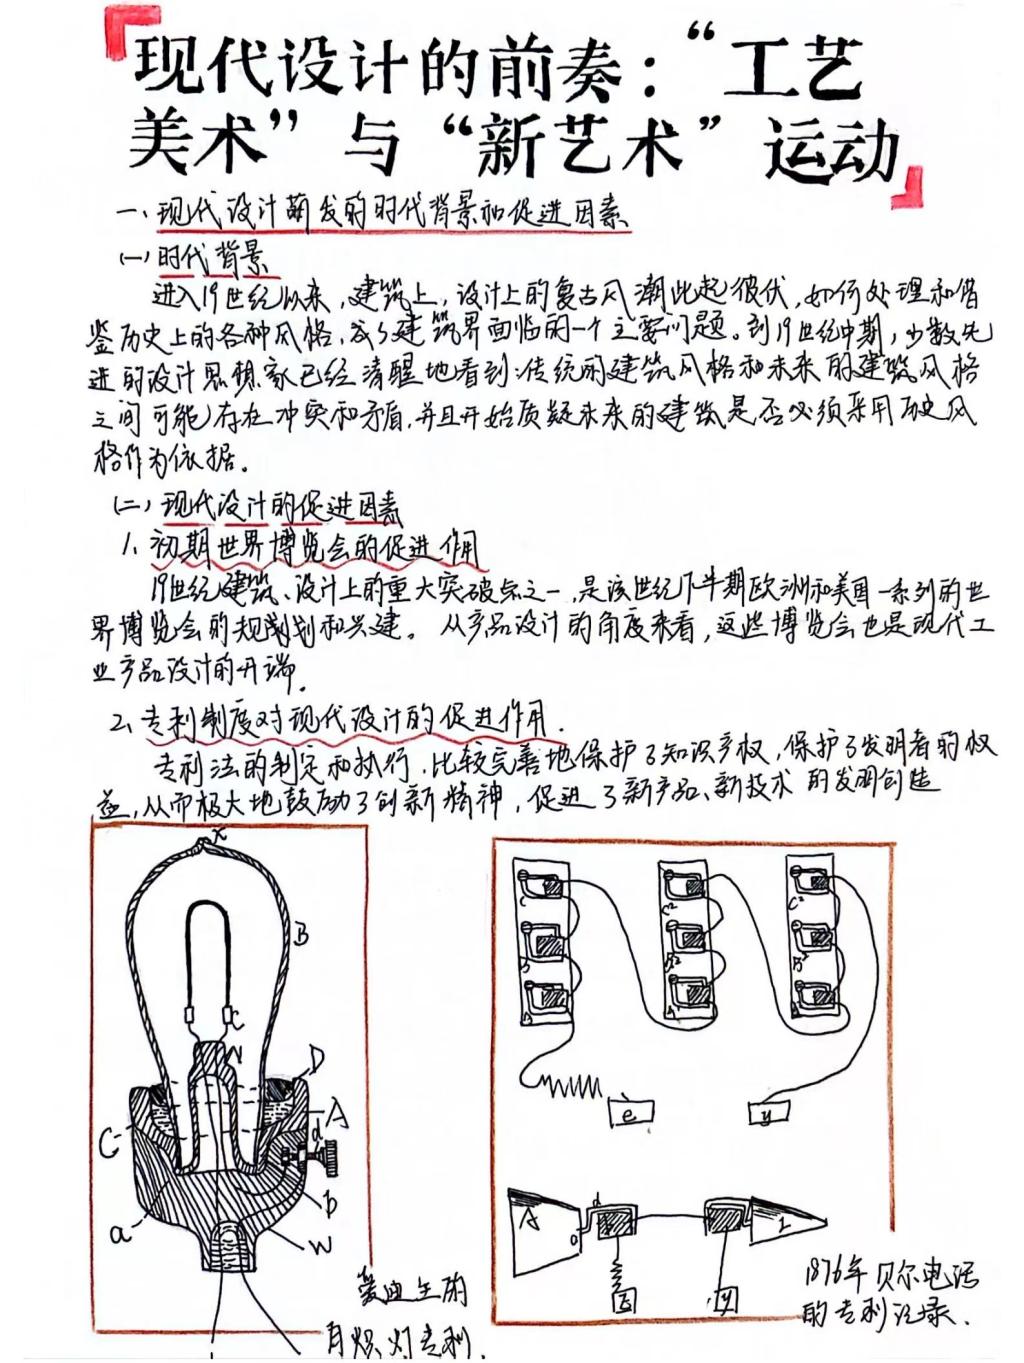 现代设计的前奏：“工艺
美术”与“新艺术”运动
一、现代设计萌发的时代背景和促进因素
(一)时代背景
进入19世纪以来，建筑上，设计上的复古风潮此起彼伏，如何处理和借
鉴历史上的各种风格，成了建筑界面临的一个主要问题。到19世纪中期，少数先
进的设计思想家已经清醒地看到：传统的建筑风格和未来的建筑风格
之间可能存在冲突和矛盾，并且开始质疑未来的建筑是否必须采用历史风
格作为依据。
(二)现代设计的促进因素
1、初期世界博览会的促进作用
19世纪建筑、设计上的重大突破点之一，是该世纪下半期欧洲和美国一系列的世
界博览会的规划和兴建。从产品设计的角度来看，这些博览会也是现代工
业产品设计的开端。
2、专利制度对现代设计的促进作用.
专利法的制定和执行，比较完善地保护了知识产权，保护了发明者的权
益，从而极大地鼓励了创新精神，促进了新产品、新技术的发明创造
x
B
C
N
D
A
C
d
b
a
W
爱迪生的
白炽灯专利.
C
B
C²
B²
A
C²
B²
e
y
A
a
d
I
1876年贝尔电话
的专利记录.